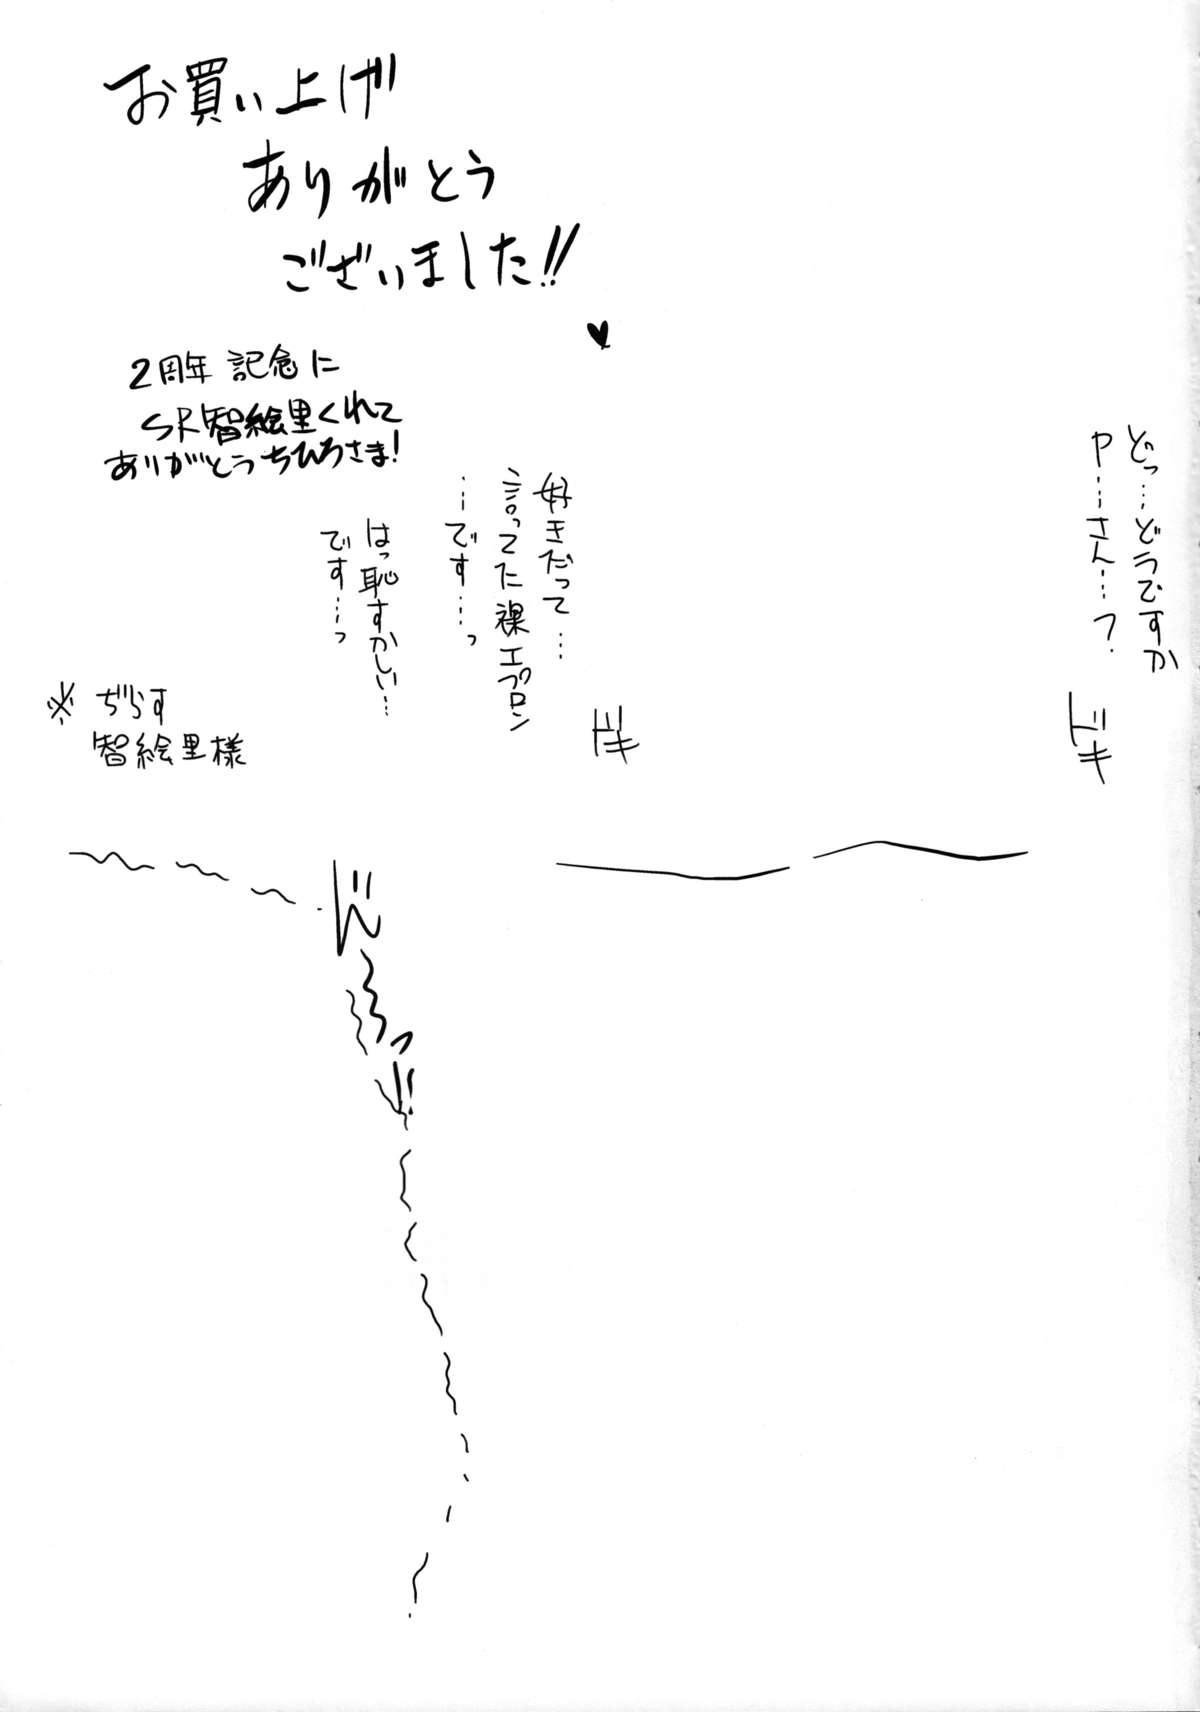 お買い上げ
ありがとう
ございました!!
♥
2周年 記念に
SR智絵里くれて
ありがとうちひろさま!
どっ…どうですか
P…さん…?
ドキ
好きだって…
言ってた裸エプロン
…です…っ
ドキ
はっ恥ずかしい…
です…っ
※ ぢらす
智絵里様